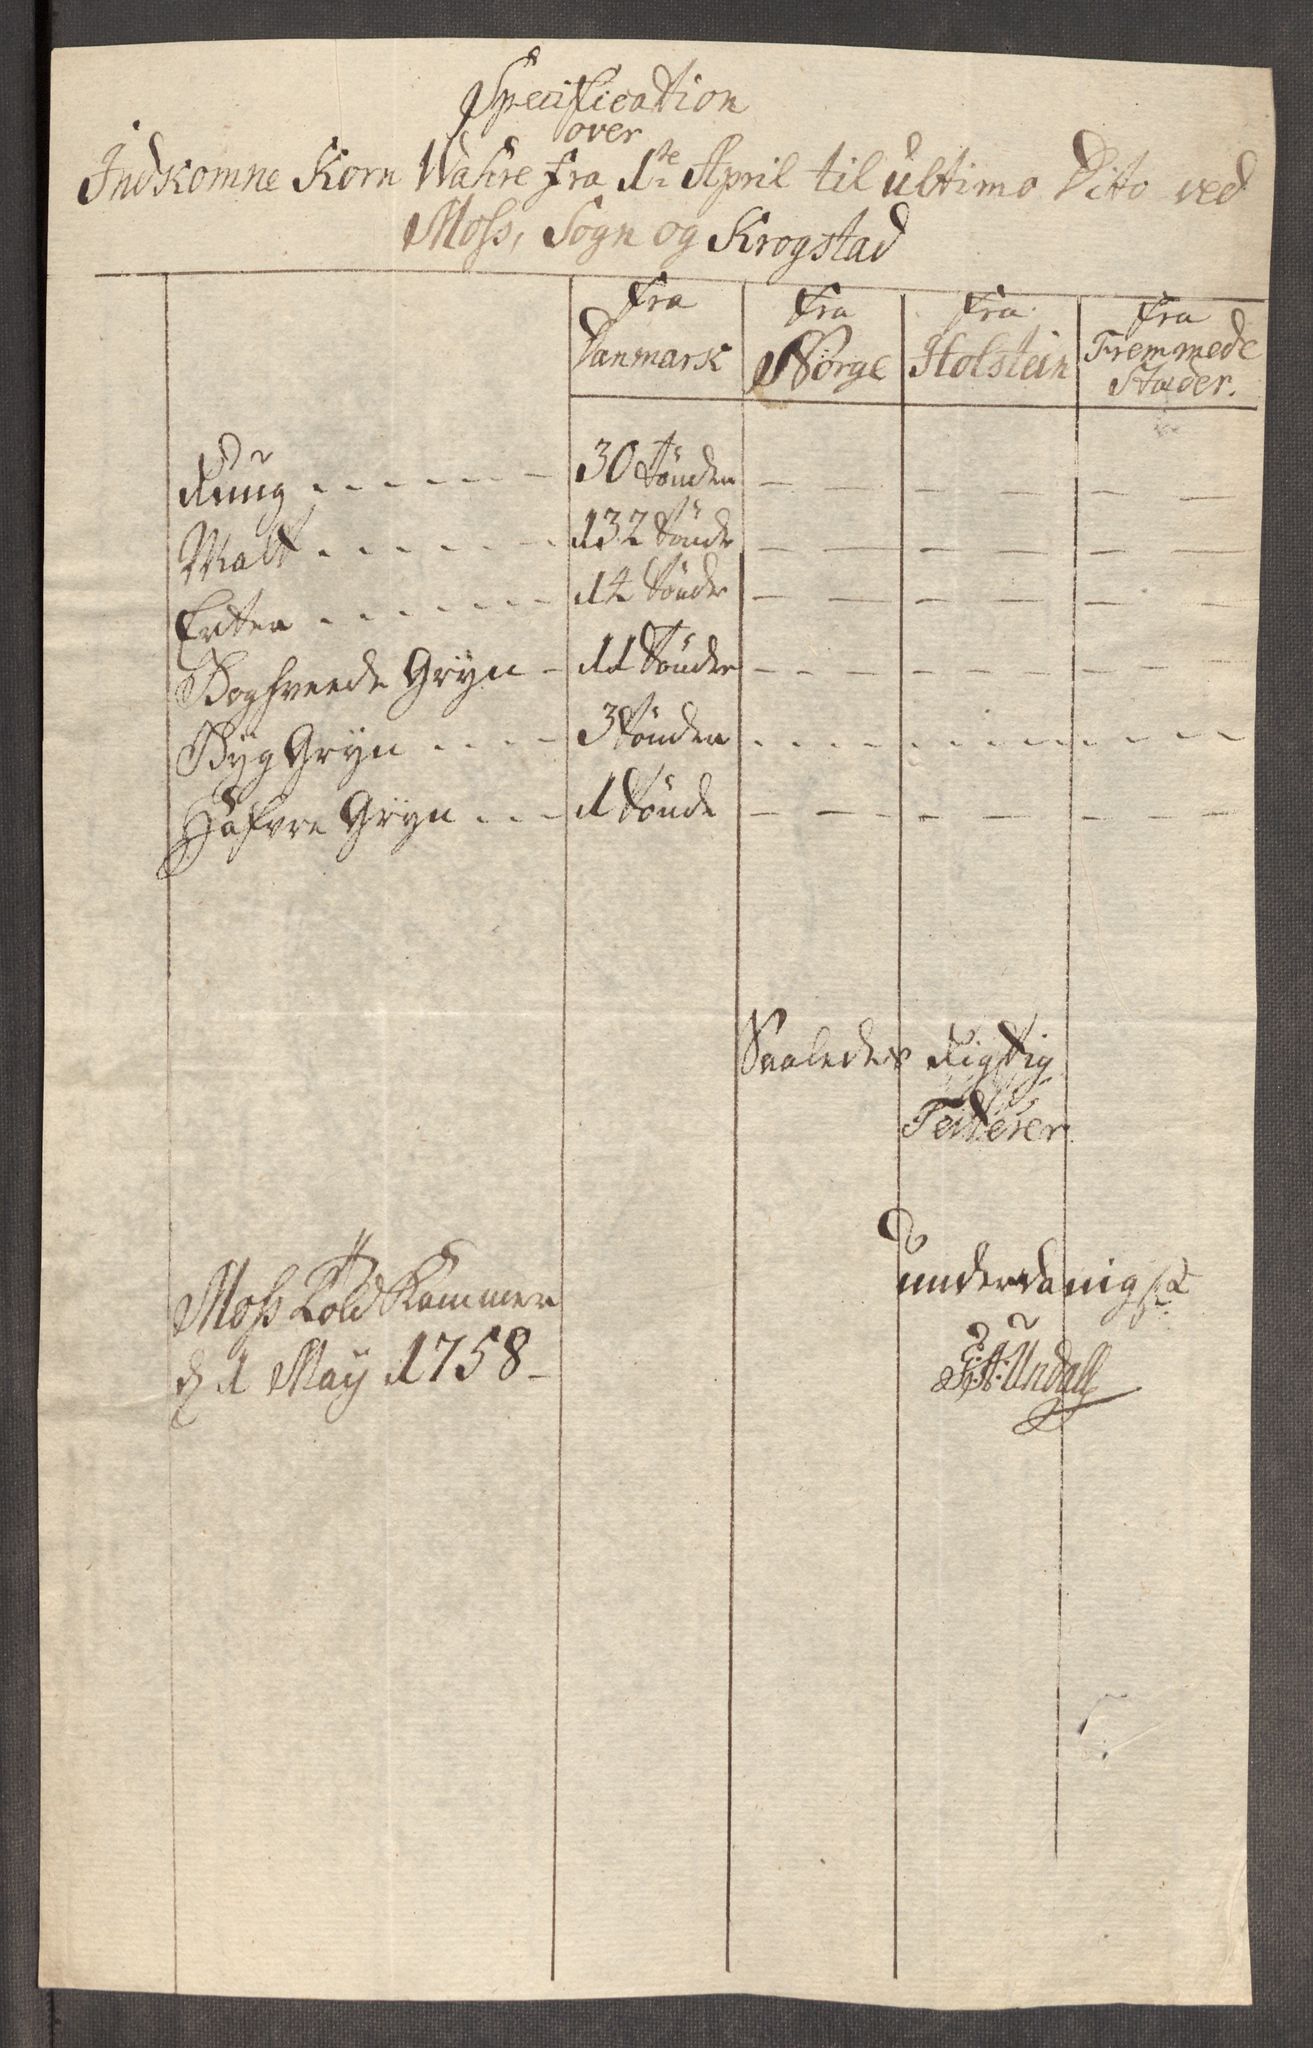 Specification
over
Indkomne Korn Wahre fra 1ste April til ultimo Dito ved
Moss, Sogn og Krogstad
fra Danmark | fra Norge | fra Holstein | fra Fremmede Stæder.
Rug - - - - - - 30 Tønder - - - - - - - -
Malt - - - - - - 132 Tønder - - - - - - - -
Erter - - - - - - 14 Tønder - - - - - - - -
Boghveede Gryn - 11 Tønder - - - - - - -
Byg Gryn - - - - 3 Tønder - - - - - - - -
Hafvre Gryn - - - 1 Tønde - - - - - - - -
Saaledes rigtig
Testerer
underdanigst
Moss Told Kammer
d. 1 May 1758
Undall